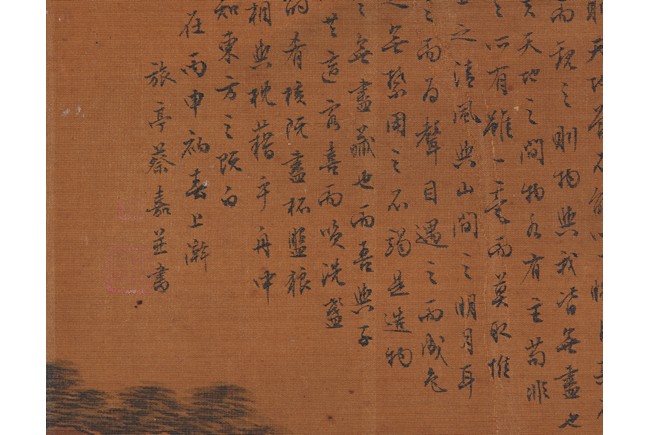 則天地曾不能以一瞬自其
而觀之則物與我皆無盡也
夫天地之間物各有主苟非
之所有雖一毫而莫取惟
上之清風與山間之明月耳
之而為聲目遇之而成色
之無禁用之不竭是造物
之無盡藏也而吾與子
共適客喜而笑洗盞
酌肴核既盡杯盤狼
相與枕藉乎舟中
知東方之既白
在丙申初春上澣
旅亭蔡嘉並書